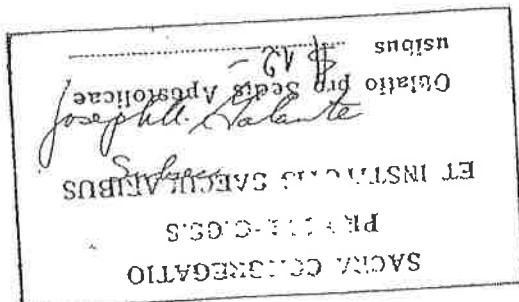 SACRA CONGREGATIO
ET INSTITUTIS SAECULARIBUS
Joseph A. Galante
Oblatio pro Sedis Apostolicae
usibus $ 12 -